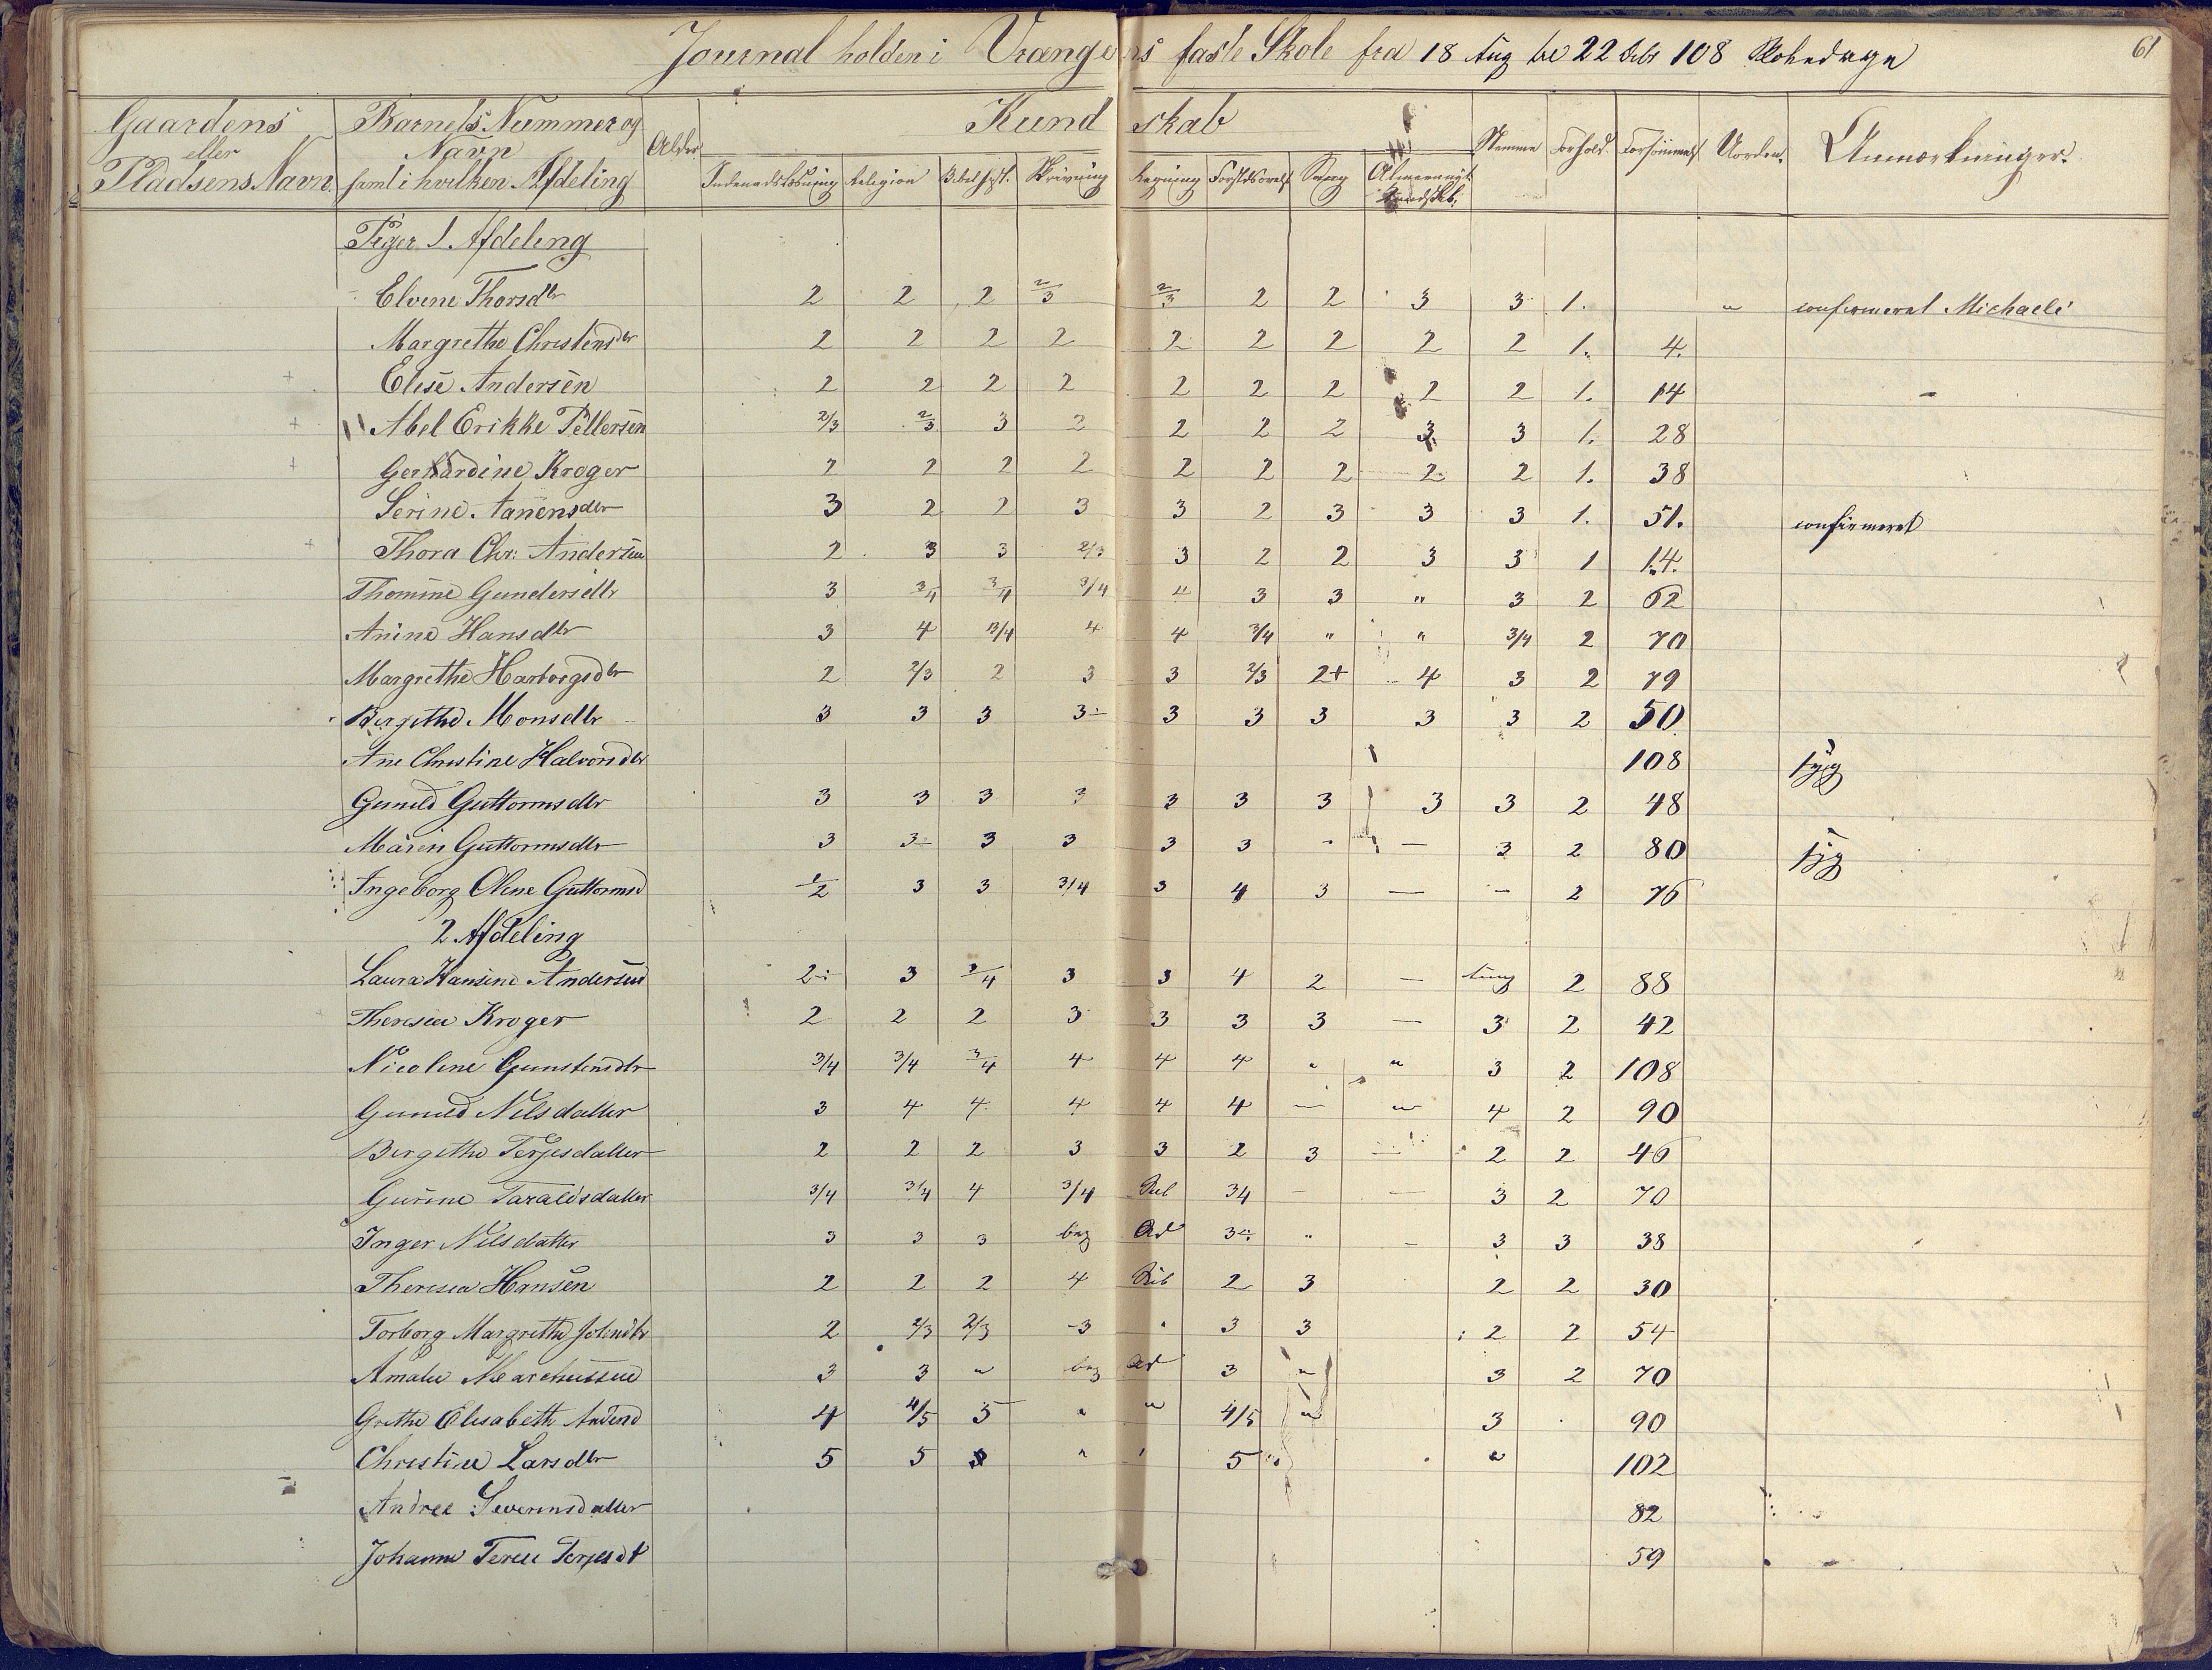 61
Journal holden i Vrængens faste Skole fra 18 Aug til 22 Debr 108 Skoledage
Gaardens eller Pladsens Navn. Barnets Nummer og Navn samt i hvilken Afdeling Alder Kundskab Stemme Forhold Forsømmels Uorden. Anmærkninger.
Indenadslæsning Religion Bibelhist. Skrivning Regning Forstdsøvels Sang Almeennyt. Kundskb.
Piger 1. Afdeling
Elvine Thorsdtr 2 2 2 2/3 2/3 2 2 3 3 1. " confirmeret Michaeli
Margrethe Christensdtr 2 2 2 2 2 2 2 2 2 1. 4.
Elise Andersen 2 2 2 2 2 2 2 2 2 1. 14
Abel Erikke Pettersen 2/3 2/3 3 3 2 2 2 3 3 1. 28
Gerhardine Krøger 2 2 2 2 2 2 2 2 2 1. 38
Serine Aanensdtr 3 2 2 3 3 2 3 3 3 1. 51. confirmeret
Thora Chr: Andersen 2 3 3 2/3 3 2 2 3 3 1 14.
Thomine Gundersdtr 3 3/4 3/4 3/4 4 3 3 " 3 2 62
Anine Hansdtr 3 4 3/4 4 4 3/4 " " 3/4 2 70
Margrethe Harborgsdtr 2 2/3 2 3 3 2/3 2+ 4 3 2 79
Bergithe Monsdtr 3 3 3 3- 3 3 3 3 3 2 50
Ane Christine Halvorsdtr 108 syg
Gunild Guttormsdtr 3 3 3 3 3 3 3 3 3 2 48
Maren Guttormsdtr 3 3- 3 3 3 3 - — 3 2 80 syg
Ingeborg Oline Guttormsd 1/2 3 3 3/4 3 4 3 — - 2 76
2 Afdeling
Laura Hansine Andersen 2÷ 3 3/4 3 3 4 2 — tung 2 88
Theresia Krøger 2 2 2 3 3 3 3 — 3 2 42
Nicoline Gunstensdtr 3/4 3/4 3/4 4 4 4 " " 3 2 108
Gunild Nilsdatter 3 4 4 4 4 4 — " 4 2 90
Bergithe Terjesdatter 2 2 2 3 3 2 3 — 2 2 46
Gurine Taraldsdatter 3/4 3/4 4 3/4 Sub 34 — — 3 2 70
Inger Nilsdatter 3 3 3 beg Ad 3÷ " - 3 3 38
Theresia Hansen 2 2 2 4 Sub 2 3 2 2 30
Torborg Margrethe 2 2/3 2/3 -3 " 3 3 2 2 54
Amalie 3 3 " beg Ad 3 " 3 2 70
Grethe Elisabeth 4 4/5 5 " " 4/5 " 3 90
Christine Larsdtr 5 5 5 " " 5 " 102
Andrea Severinsdatter 82
Johanne Terjesdt 59